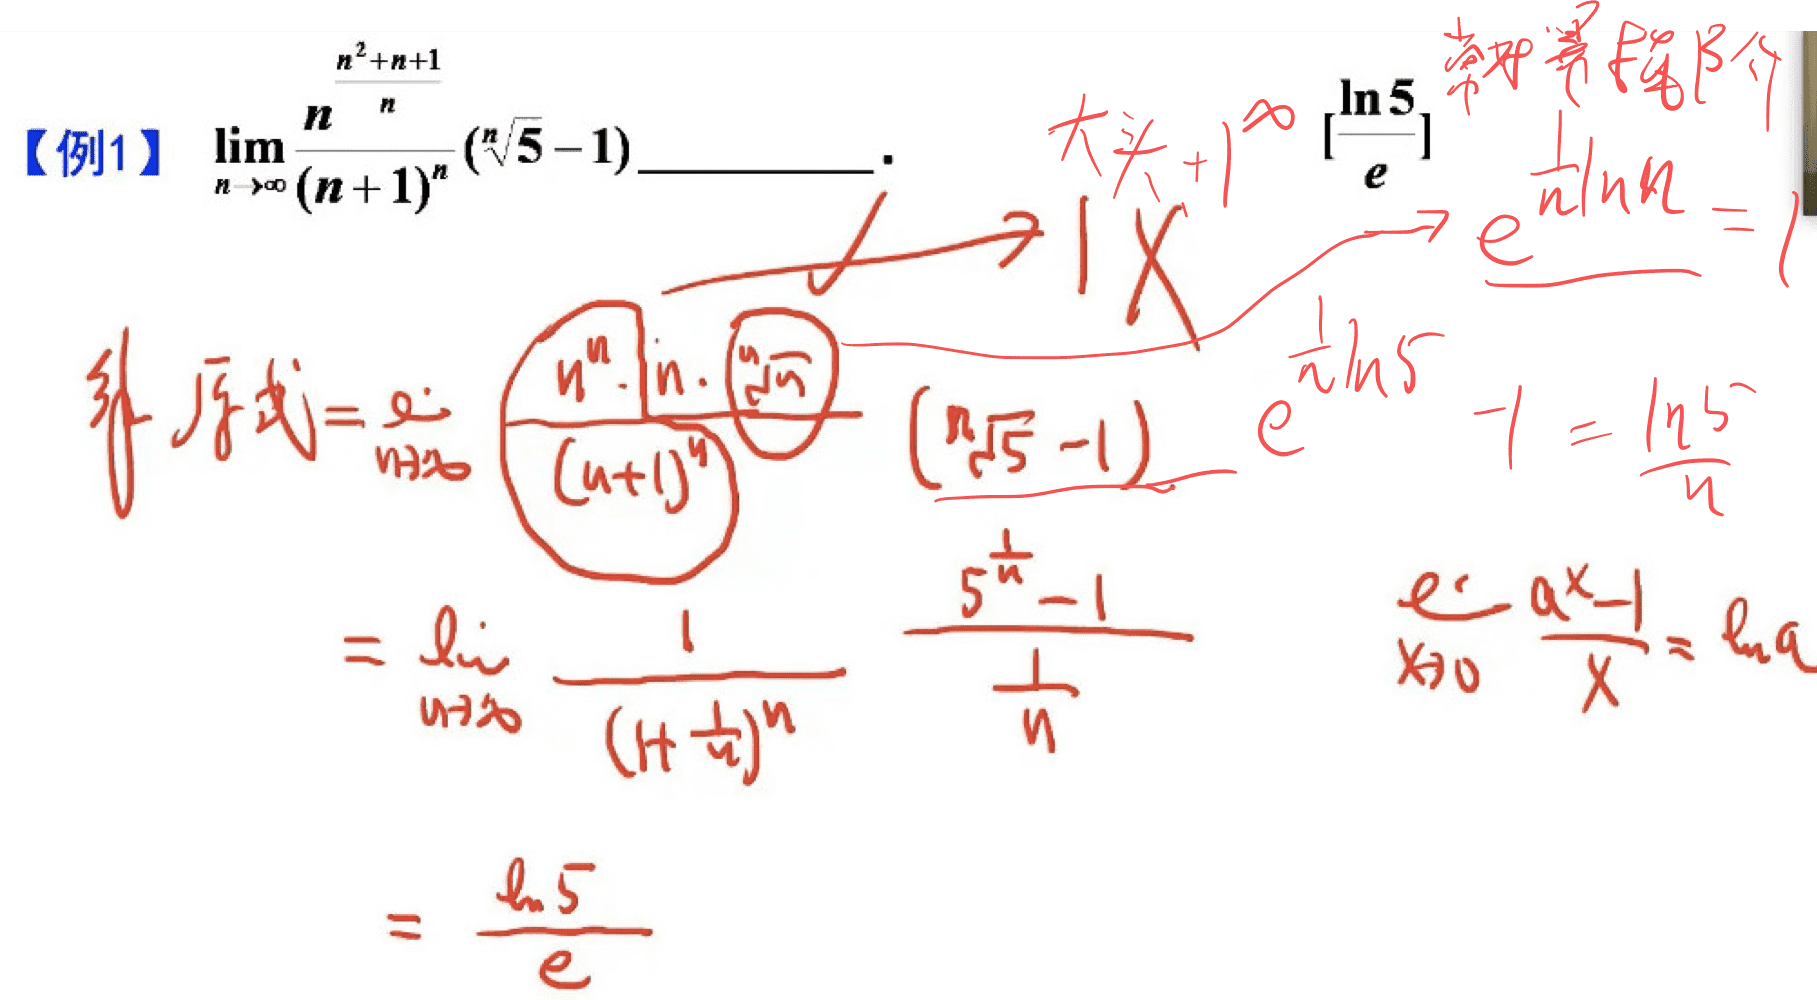 【例1】 lim n→∞ n^((n²+n+1)/n) / (n+1)^n (ⁿ√5 − 1)________. [ln5/e]
大头 + 1^∞
e^(1/n ln n) = 1
1 X
解 原式 = lim n→∞ n^n · n · ⁿ√n / (n+1)^n (ⁿ√5 − 1)
e^(1/n ln5) − 1 = ln5/n
= lim n→∞ 1/(1+1/n)^n (5^(1/n) − 1)/(1/n)
lim x→0 (a^x − 1)/x = ln a
= ln5/e